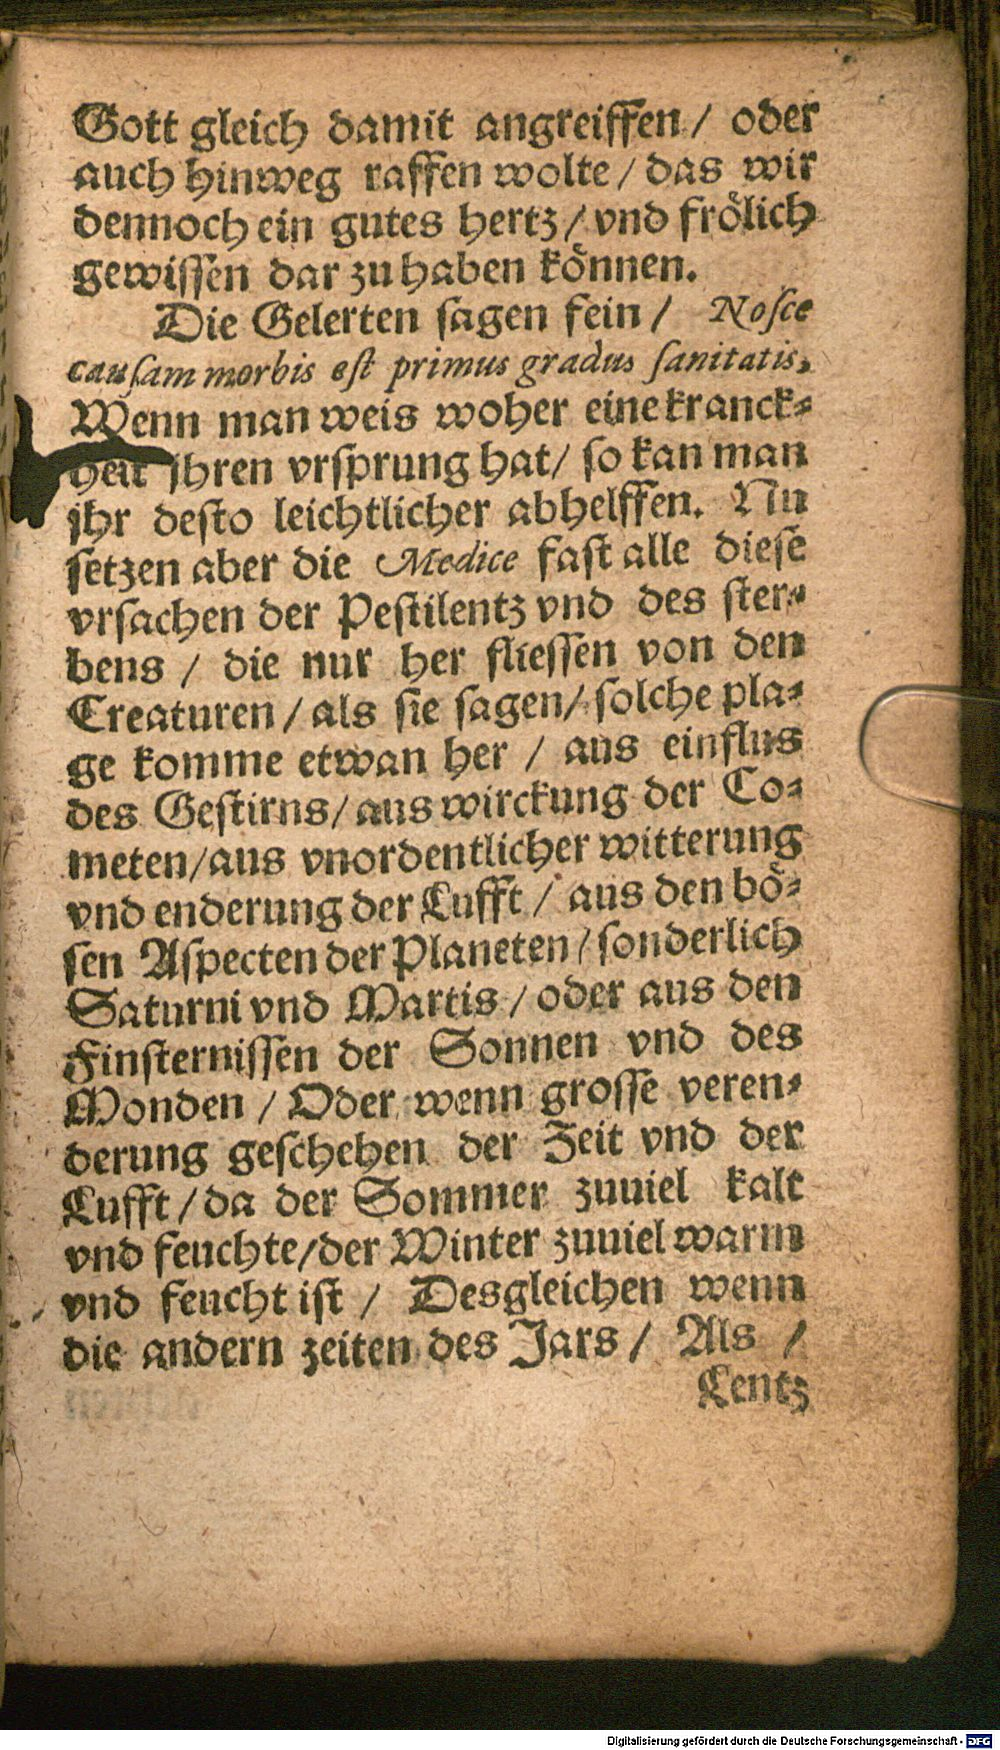 Gott gleich damit angreiffen / oder
auch hinweg raffen wolte / das wir
dennoch ein gutes hertz / vnd frölich
gewissen dar zu haben können.
Die Gelerten sagen fein / Nosce
causam morbis est primus gradus sanitatis.
Wenn man weis woher eine kranck-
heit jhren vrsprung hat / so kan man
jhr desto leichtlicher abhelffen. Nu
setzen aber die Medice fast alle diese
vrsachen der Pestilentz vnd des ster-
bens / die nur her fliessen von den
Creaturen / als sie sagen / solche pla-
ge komme etwan her / aus einflus
des Gestirns / aus wirckung der Co-
meten / aus vnordentlicher witterung
vnd enderung der Lufft / aus den bö-
sen Aspecten der Planeten / sonderlich
Saturni vnd Martis / oder aus den
Finsternissen der Sonnen vnd des
Monden / Oder wenn grosse veren-
derung geschehen der Zeit vnd der
Lufft / da der Sommer zuuiel kalt
vnd feuchte / der Winter zuuiel warm
vnd feucht ist / Desgleichen wenn
die andern zeiten des Jars / Als /
Lentz
Digitalisierung gefördert durch die Deutsche Forschungsgemeinschaft - DFG